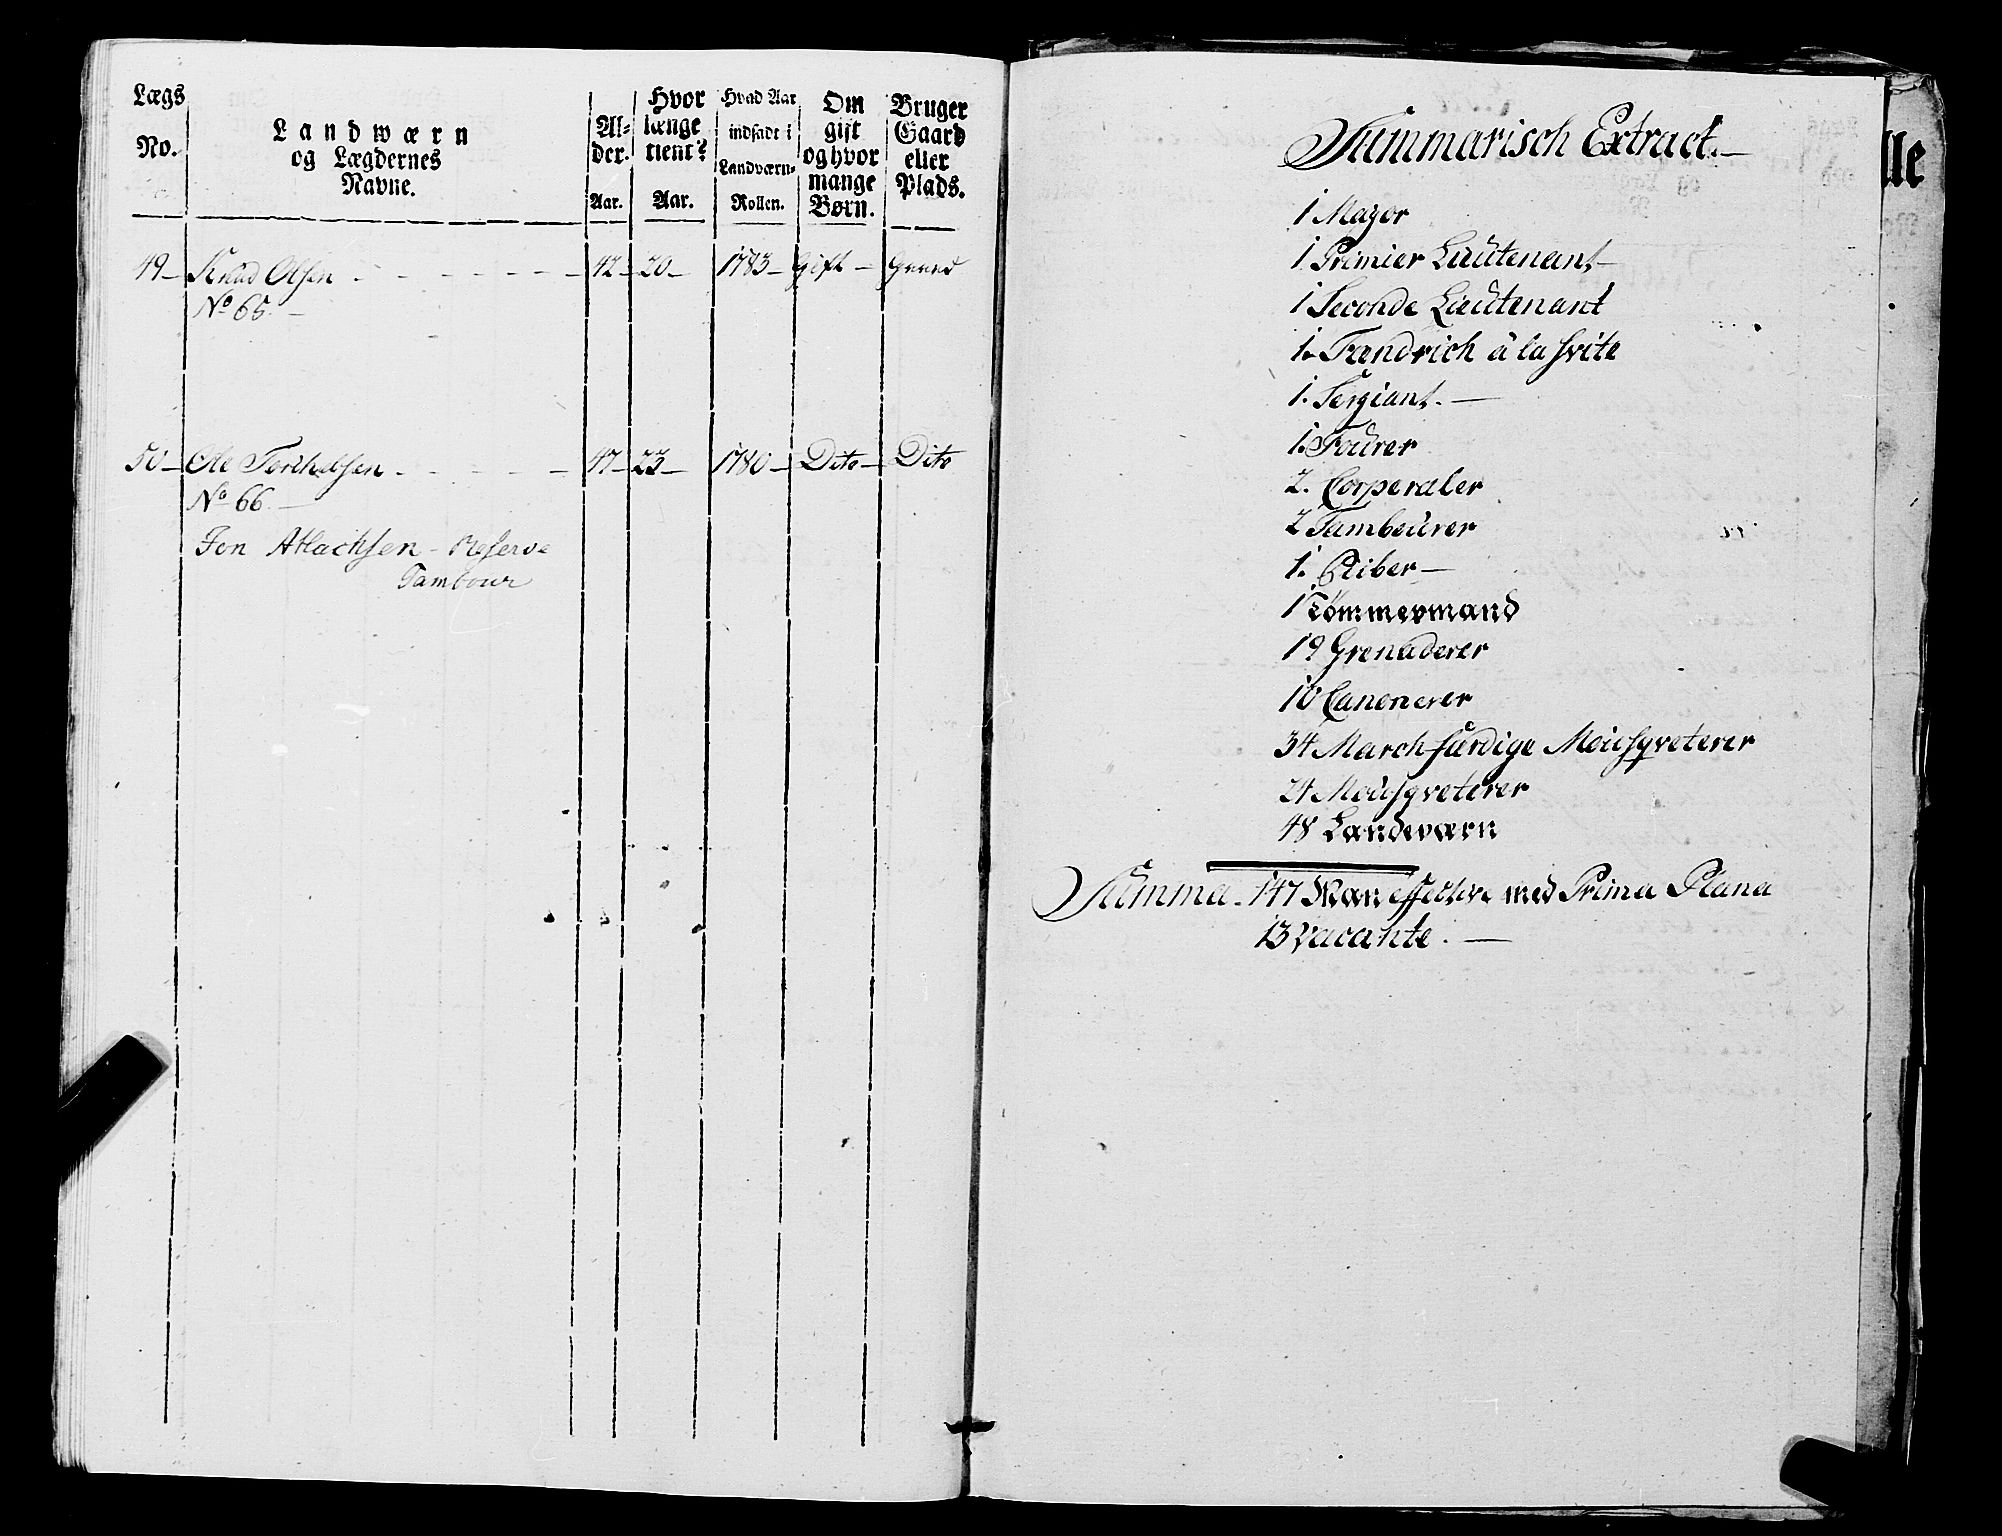 Lægs No.
Landwærn og Lægdernes Navne.
Al-der. Aar.
Hvor længe tient? Aar.
Hvad Aar indsadt i Landværn-Rollen.
Om gift og hvor mange Børn.
Bruger Gaard eller Plads.
49 Knud Olsen 42 20 1783 Gift Gaard
No 65.
50 Ole 47 23 1780 Dito Dito
No 66
Jon Atlachsen - Reserve
Tambour
Summarisch Extract.
1 Major
1 Premier Lieutenant
1 Seconde Lieutenant
1. Fændrich à la Svite
1. Sergiant.
1. Fourer
2. Corporaler
2 Tambourer
1. Piber
1 Tømmermand
19 Grenaderer
10 Canonerer
34 Marchfærdige Mousqveterer
24 Mousqveterer
48 Landeværn
Summa. 147 Man effective med Prima Plana
13 Vacante.
lle